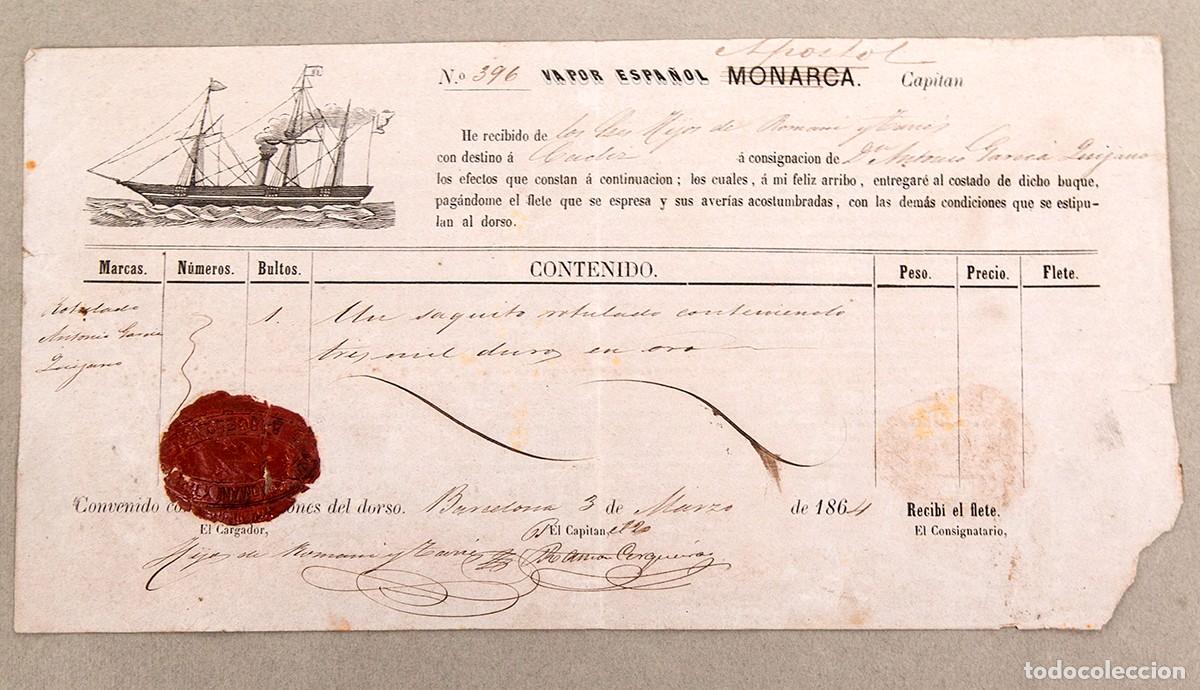 Apostol
N.o 396 VAPOR ESPAÑOL MONARCA. Capitan
He recibido de los Sres Hijos de Romani y Tarrés
con destino á Cadiz á consignacion de Dn Antonio Garcia Quijano
los efectos que constan á continuacion; los cuales, á mi feliz arribo, entregaré al costado de dicho buque,
pagándome el flete que se espresa y sus averías acostumbradas, con las demás condiciones que se estipu-
lan al dorso.
Marcas. Números. Bultos. CONTENIDO. Peso. Precio. Flete.
Rotulado 1. Un saquito rotulado conteniendo
Antonio Garcia tres mil duros en oro
Quijano
Convenido ones del dorso. Barcelona 3 de Marzo de 1864 Recibí el flete.
El Cargador, El Capitan, El Consignatario,
Hijos de Romani y Tarrés
todocoleccion